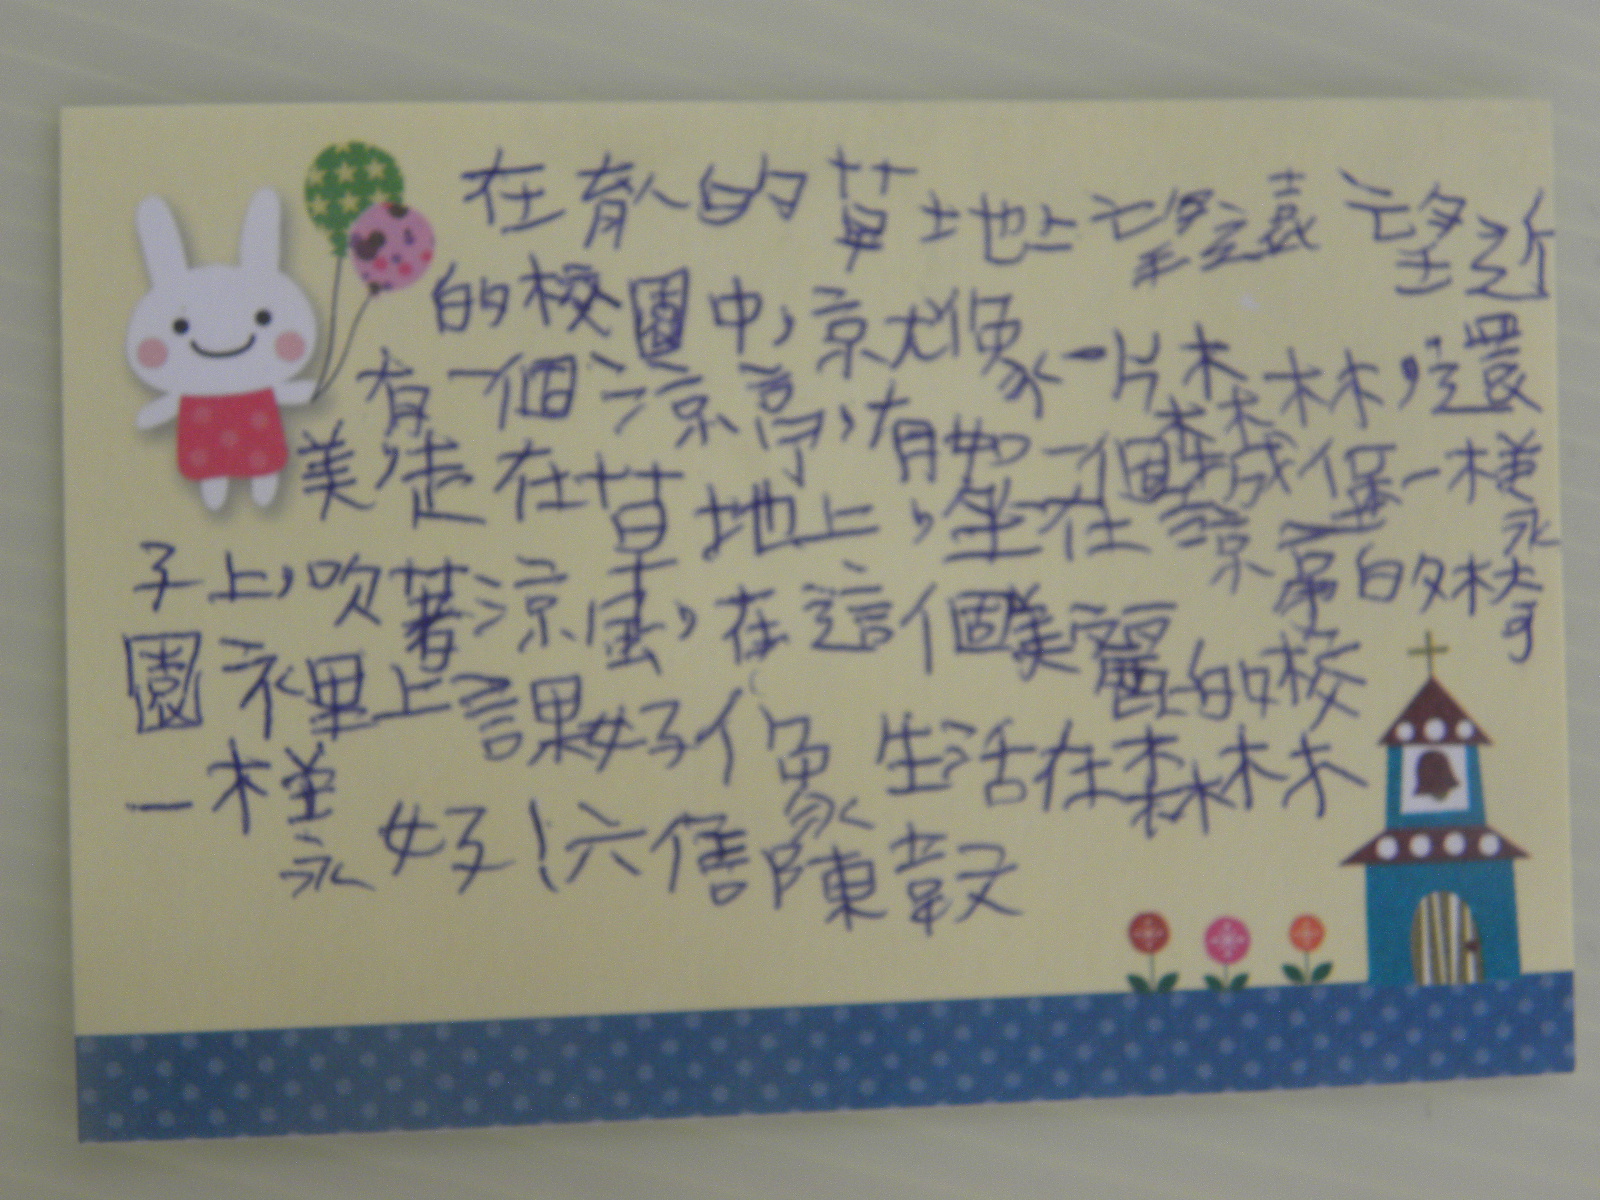 在育人的草地上望遠望近
的校園中,京尤像一片森林,還
有一個涼亭,有如一個森城堡一樣
美徒在草地上,坐在涼亭的椅
子上,吹著涼風,在這個美麗的校
園裡上課好像生活在森林
一樣好!六雋陳